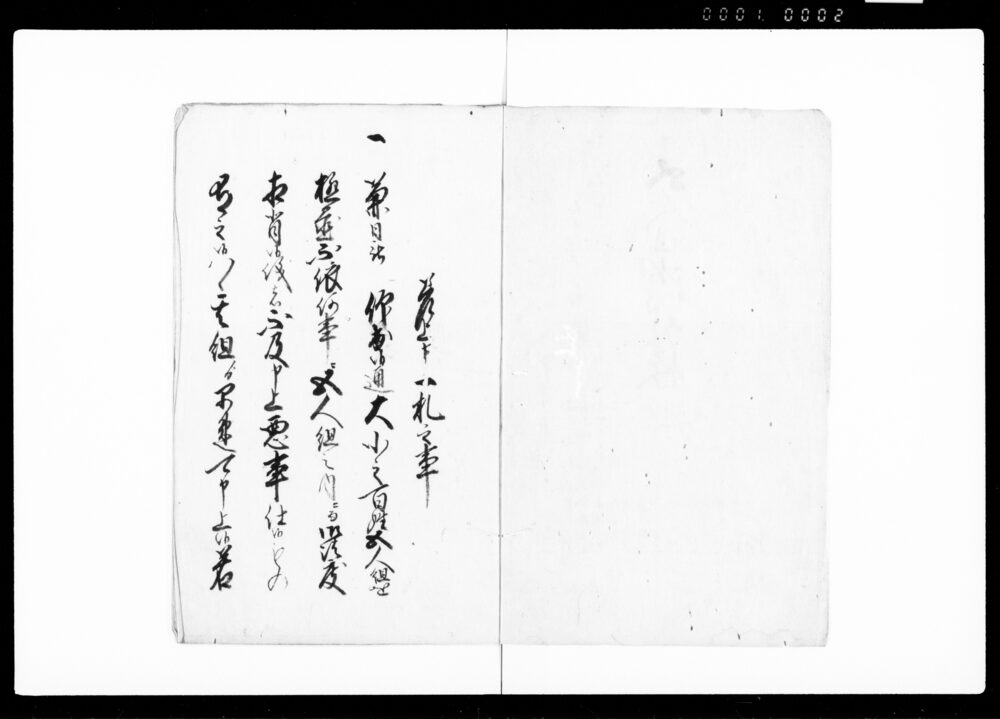 0001. 0002
差上申一札之事
一 兼日被 仰書候通大小之百姓五人組を
極置不依何事ニ五人組之内ニ而御法度
相背候儀ハ不及申上悪事仕候もの
有之候ハヽ其組ゟ早速可申上候若